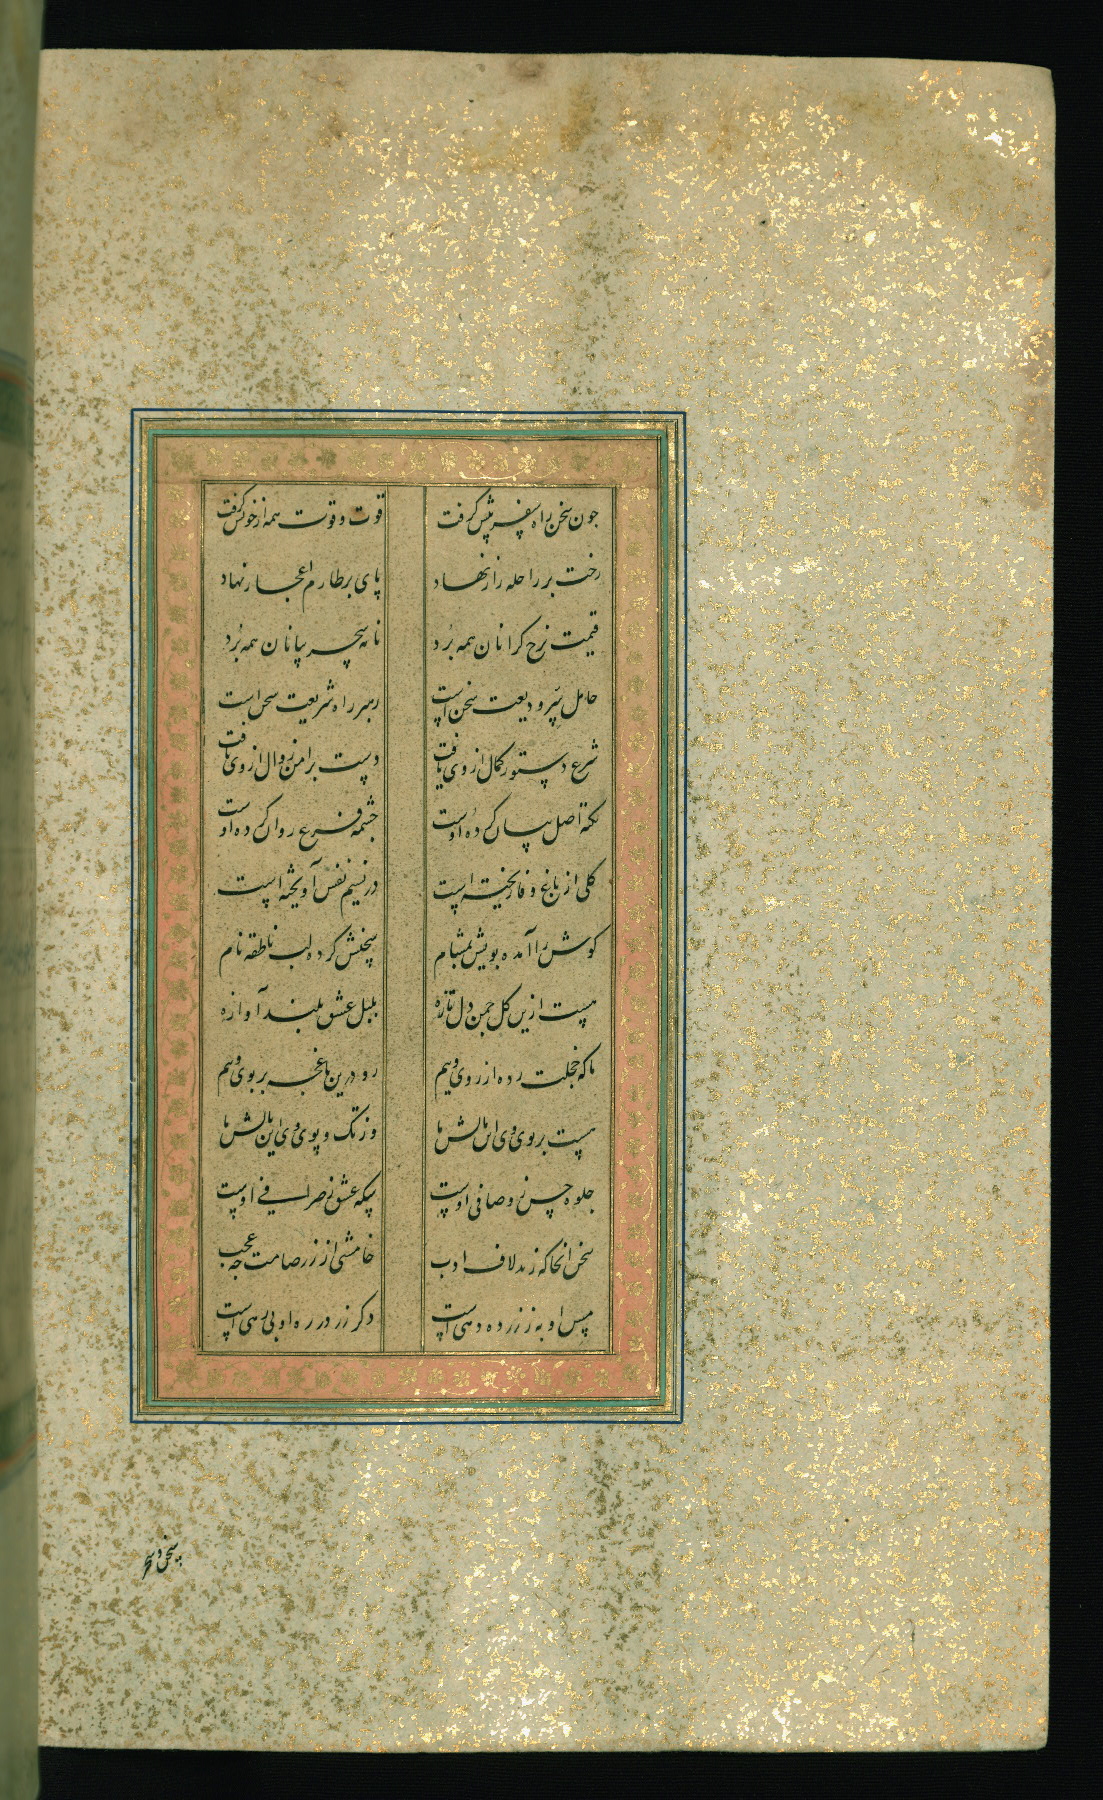 چون سخن راه سفر پیش گرفت قوت و قوت همه از خویش گرفت
رخت بر راحله راز نهاد پای بر طارم اعجاز نهاد
قیمت نرخ گرانان همه برد نامه سحر بیانان همه برد
حامل سر ودیعت سخن است رهبر راه شریعت سخن است
شرع دستور کمال از وی یافت دست بر امن زوال از وی یافت
نکته اصل بیان کرده اوست چشمه فرع روان کرده اوست
گلی از باغ وفا ریخته است در نسیم نفس آویخته است
گوش را آمده بویش بمشام سخنش کرده لب ناطقه نام
هست ازین گل چمن دل تازه بلبل عشق بلند آوازه
ما که خجلت زده از روی وییم رو درین باغچه بر بوی وییم
هست بر روی وی این مالش ما وز تک و پوی وی این بالش ما
جلوه حسن ز وصافی اوست سکه عشق ز صرافی اوست
سخن آنجا که زند لاف ادب خامشی از زر صامت چه عجب
مس او به ز زر ده دهی است دگر زر در ره او بی رهی است
سخن و سحر